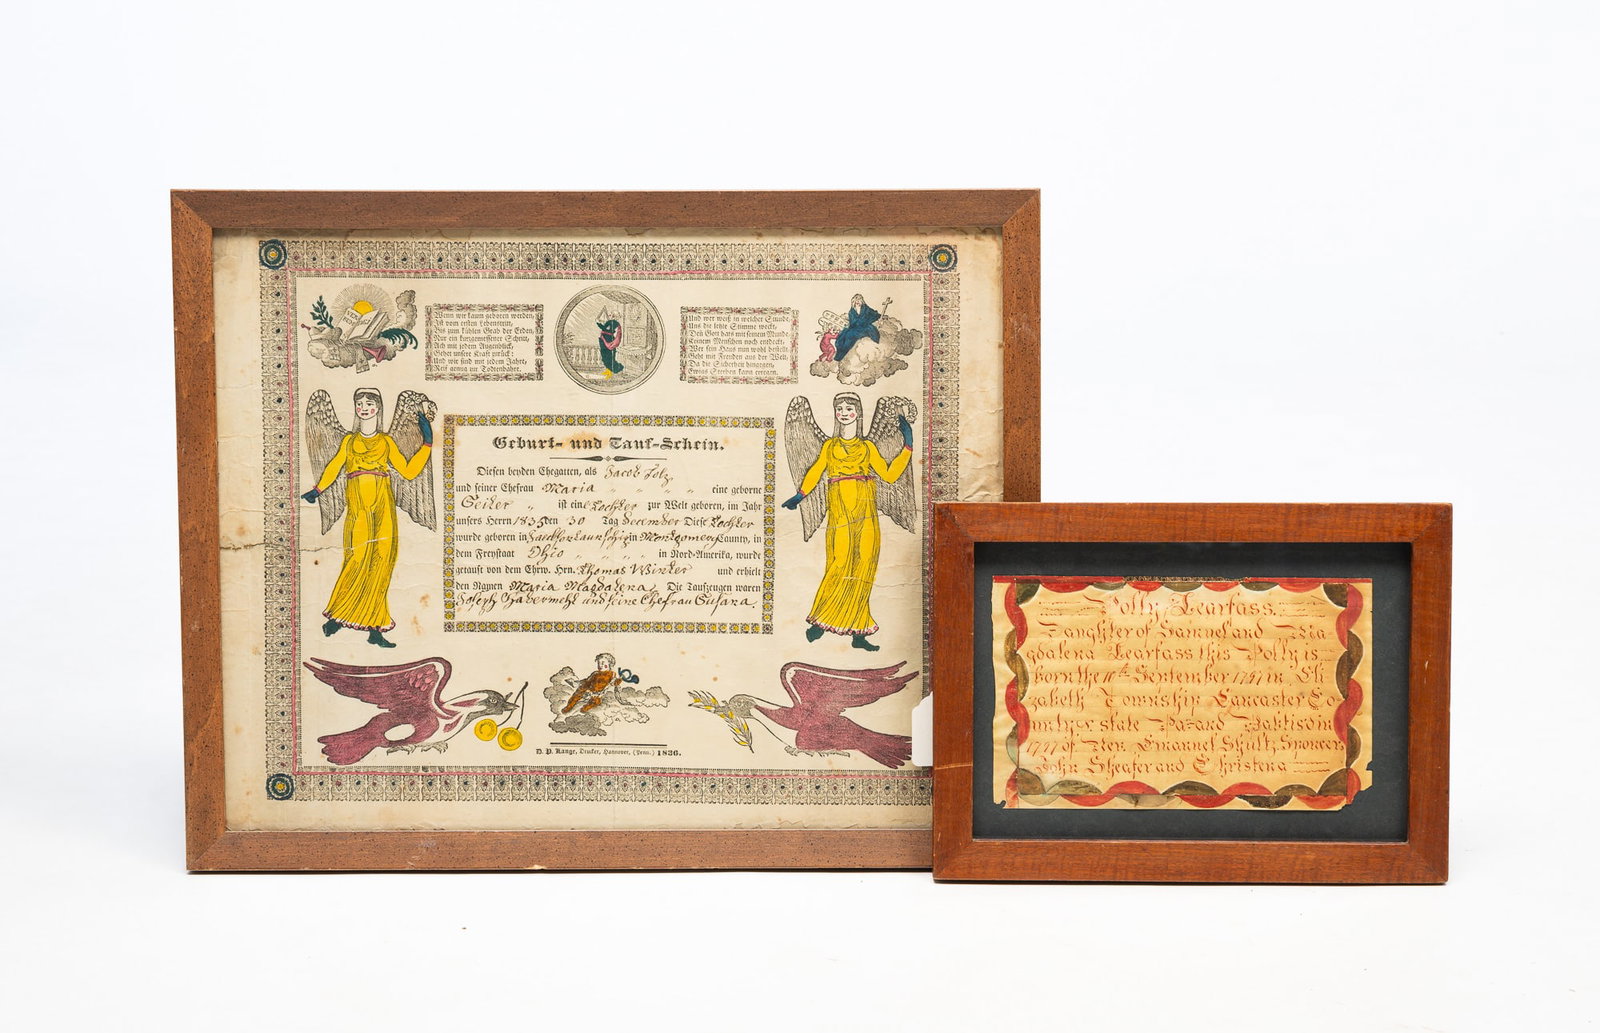 Wenn wir kaum geboren werden,
Ist vom ersten Lebenstritt,
Bis zum kühlen Grab der Erden,
Nur ein kurzgemessner Schritt,
Ach mit jedem Augenblick,
Gehet unsre Kraft zurück:
Und wir sind mit jedem Jahre,
Reif genug zur Todtenbahre.
Und wer weiß in welcher Stunde,
Uns die letzte Stimme weckt,
Denn Gott hats mit seinem Munde,
Keinem Menschen noch entdeckt.
Wer sein Haus nun wohl bestellt,
Geht mit Freuden aus der Welt,
Da die Sicherheit hingegen,
Ewigs Sterben kann erregen.
Geburt- und Tauf-Schein.
Diesen beyden Ehegatten, als Jacob Folz
und seiner Ehefrau Maria " " " " eine geborne
Geiker " ist eine Tochter zur Welt geboren, im Jahr
unsers Herrn 1835 den 30 Tag December Diese Tochter
wurde geboren in Jackson Taunschip in Montgomery Caunty, in
dem Freystaat Ohio " " " " in Nord-Amerika, wurde
getauft von dem Ehrw. Hrn. Thomas Winter und erhielt
den Namen Maria Magdalena. Die Taufzeugen waren
Joseph Habermehl und seine Ehefrau Susana.
D. P. Lange, Drucker, Hannover, (Penn.) 1836.
Polly Learfass.
Daughter of Samuel and Ma
gdalena Learfass this Polly is
born the 11th September 1797 in Eli
zabeth Township Lancaster Co
unty & state Pa. and Babtisd in
1797 of Rev. Emanuel Shultz Sponcers
John Sheafer and Christena